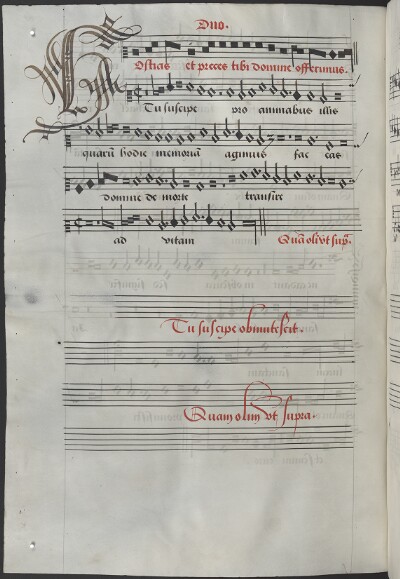 Duo.
Hostias et preces tibi domine offerimus.
Tu suscipe pro animabus illis
quarū hodie memoriā agimus fac eas
domine de morte transire
ad vitam Quā oliʒ vt supᵃ.
Tu suscipe obmutescit.
Quam olim vt supra.